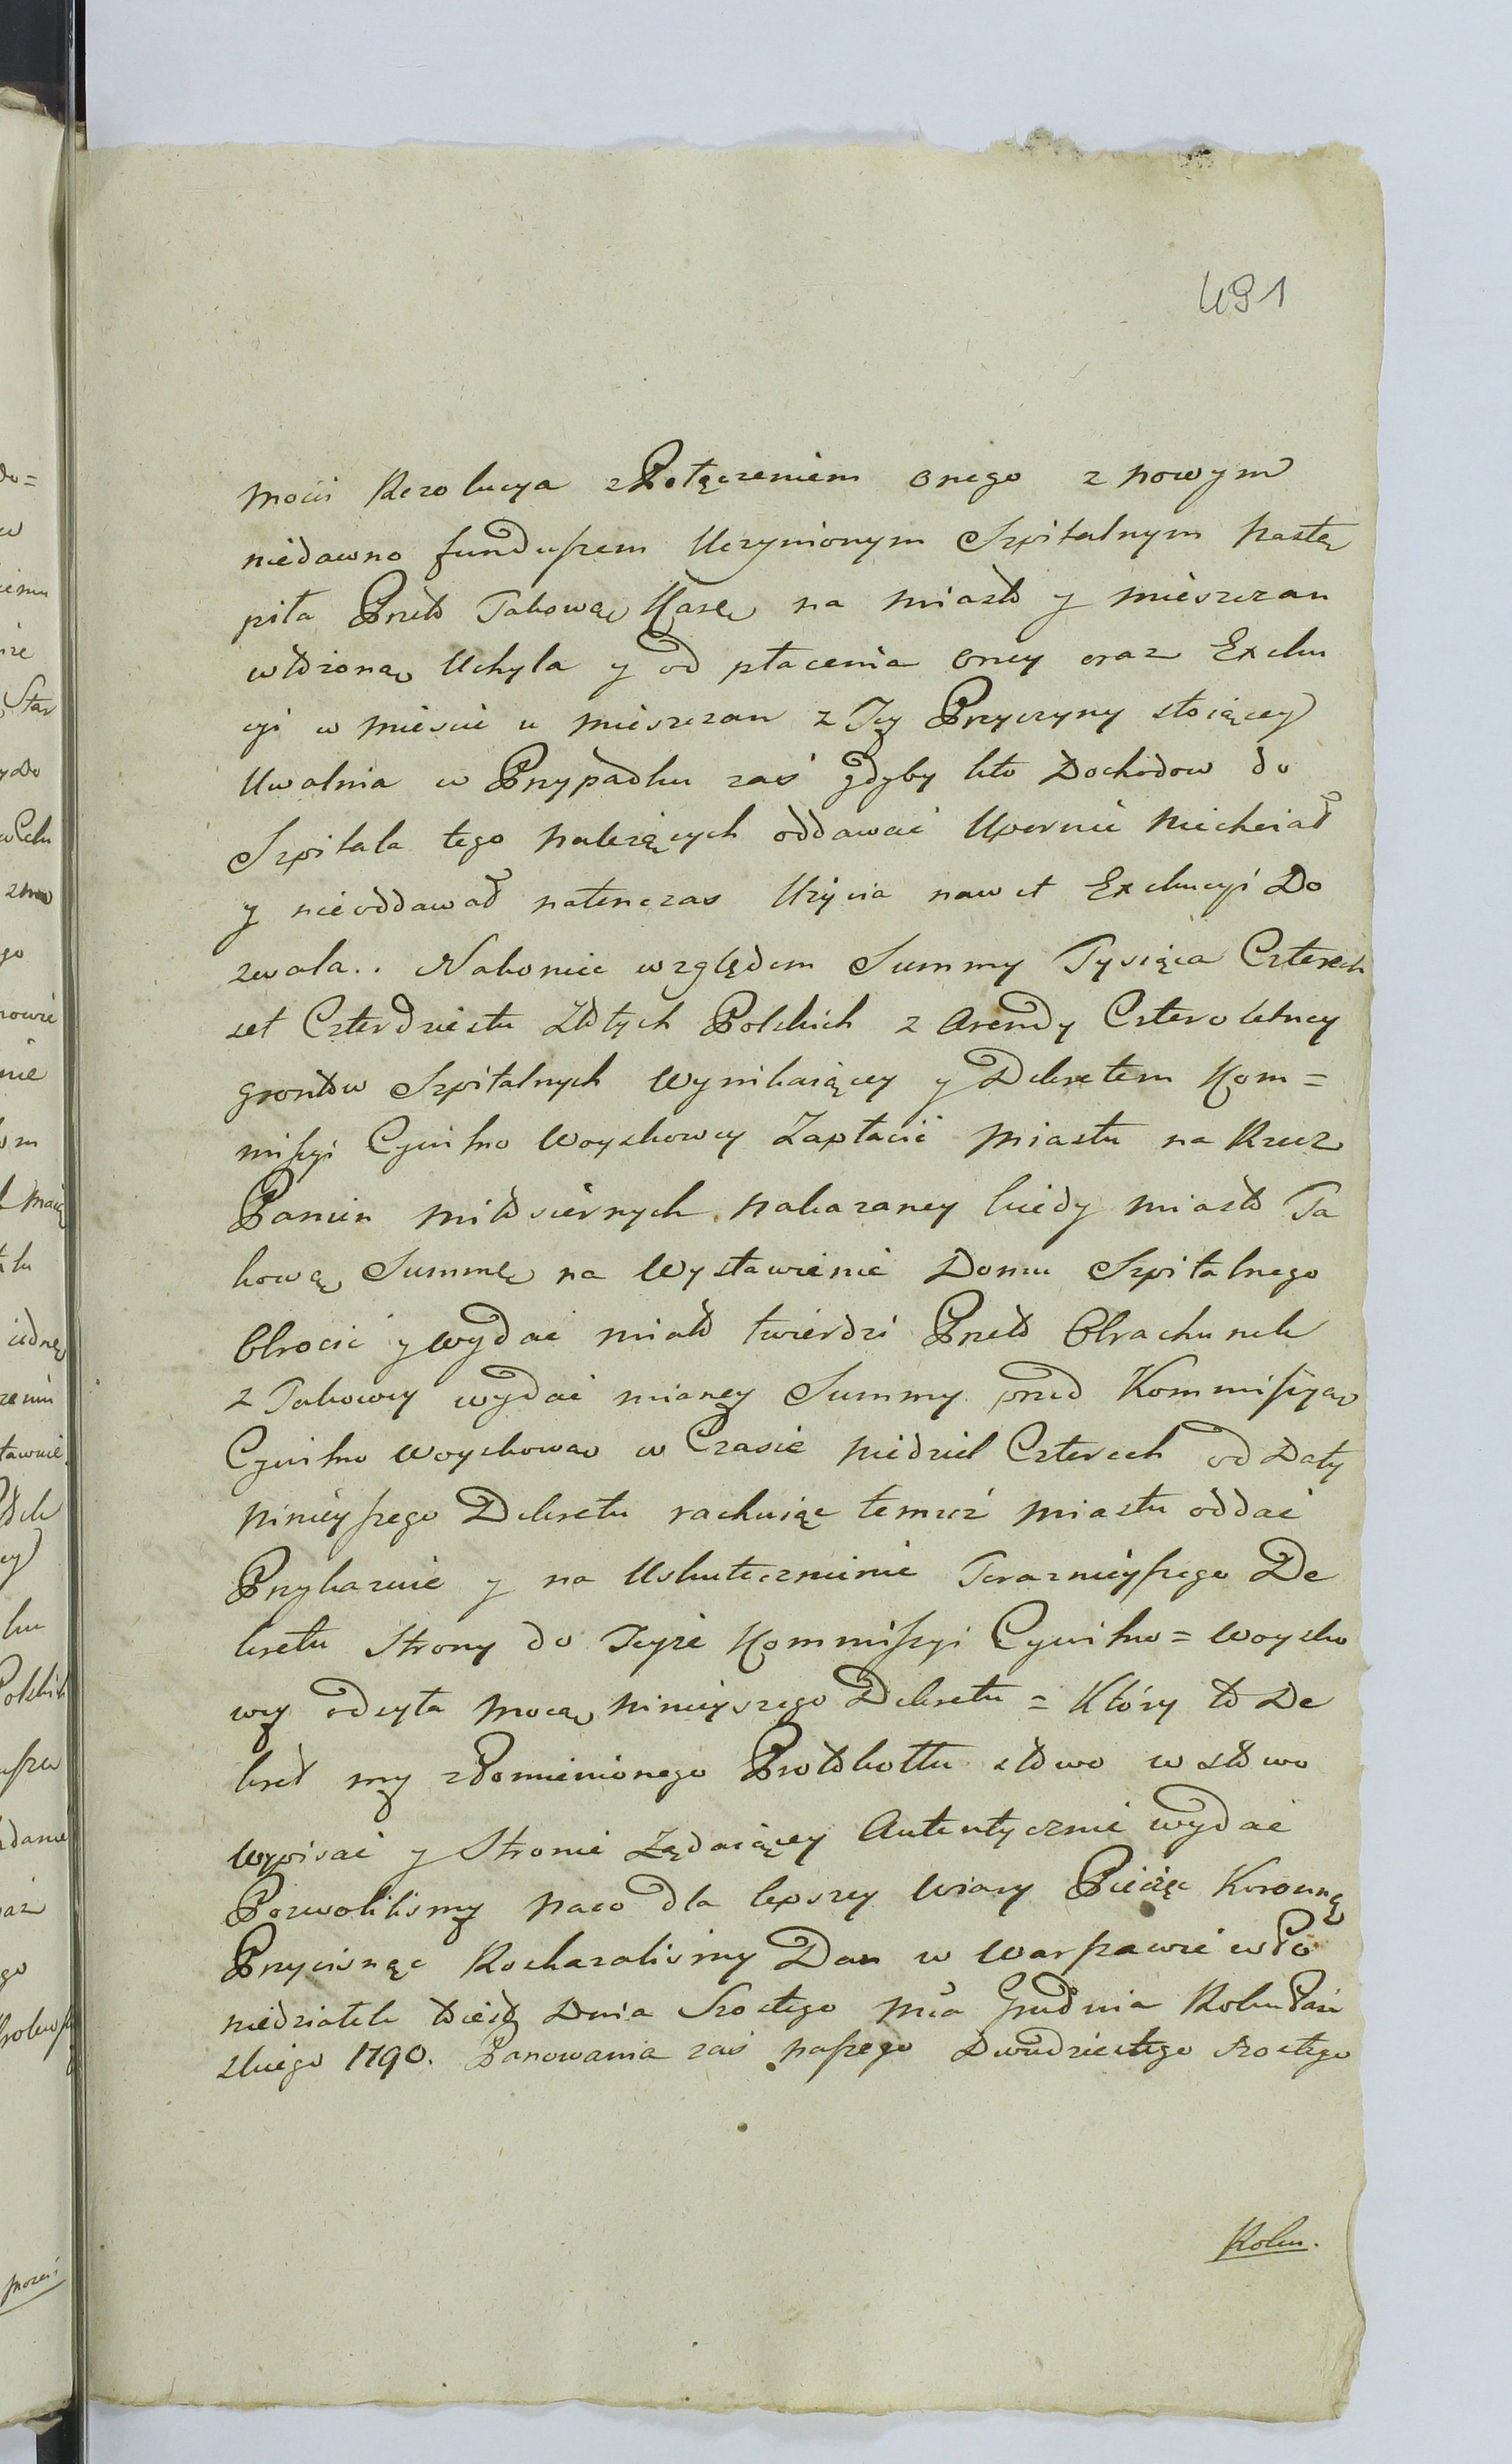 491
mości Rezolucya z Połączeniem onego z nowym
niedawno funduszem Uczynionym Szpitalnym nastą
piła Przeto Takową Karę na miasto y mieszczan
włożoną Uchyla y od płacenia oney oraz Exeku
cyi w mieście u mieszczan z Tey Przyczyny stoiącey
Uwalnia w Przypadku zaś gdyby kto Dochodow do
Szpitala tego należących oddawać Upornie niechciał
y nieoddawał natenczas Użycia nawet Exekucyi Do
zwala.. Nakoniec względem Summy Tysiąca Czterech
set Czterdziestu Złotych Polskich z Arendy Czteroletney
gruntow Szpitalnych Wynikaiącey y Dekretem Kom=
missyi Cywilno Woyskowey Zapłacić miastu na Rzecz
Panien miłosiernych nakazaney kiedy miasto Ta
kową Summę na Wystawienie Domu Szpitalnego
Obrocić y wydać miało twierdzi Przeto Obrachunek
z Takowey wydać mianey Summy przed Kommissyą
Cywilno Woyskową w Czasie niedziel Czterech od Daty
ninieyszego Dekretu rachuiąc temuż miastu oddać
Przykazuie y na Uskutecznienie Teraznieyszego De
kretu Strony do Teyże Kommissyi Cywilno = Woysko
wey odsyła mocą ninieyszego Dekretu = Który to De
kret my z Pomienionego Protokołłu słowo w słowo
wypisać y Stronie Żądaiącey Autentycznie wydać
Pozwoliliśmy naco dla lepszey Wiary Pieczęć Koronną
Przycisnąć Rozkazaliśmy Dan w Warszawie w Po
niedziałek to iest Dnia Szostego mca Grudnia Roku Pań
skiego 1790. Panowania zaś naszego Dwudziestego szostego
Roku.